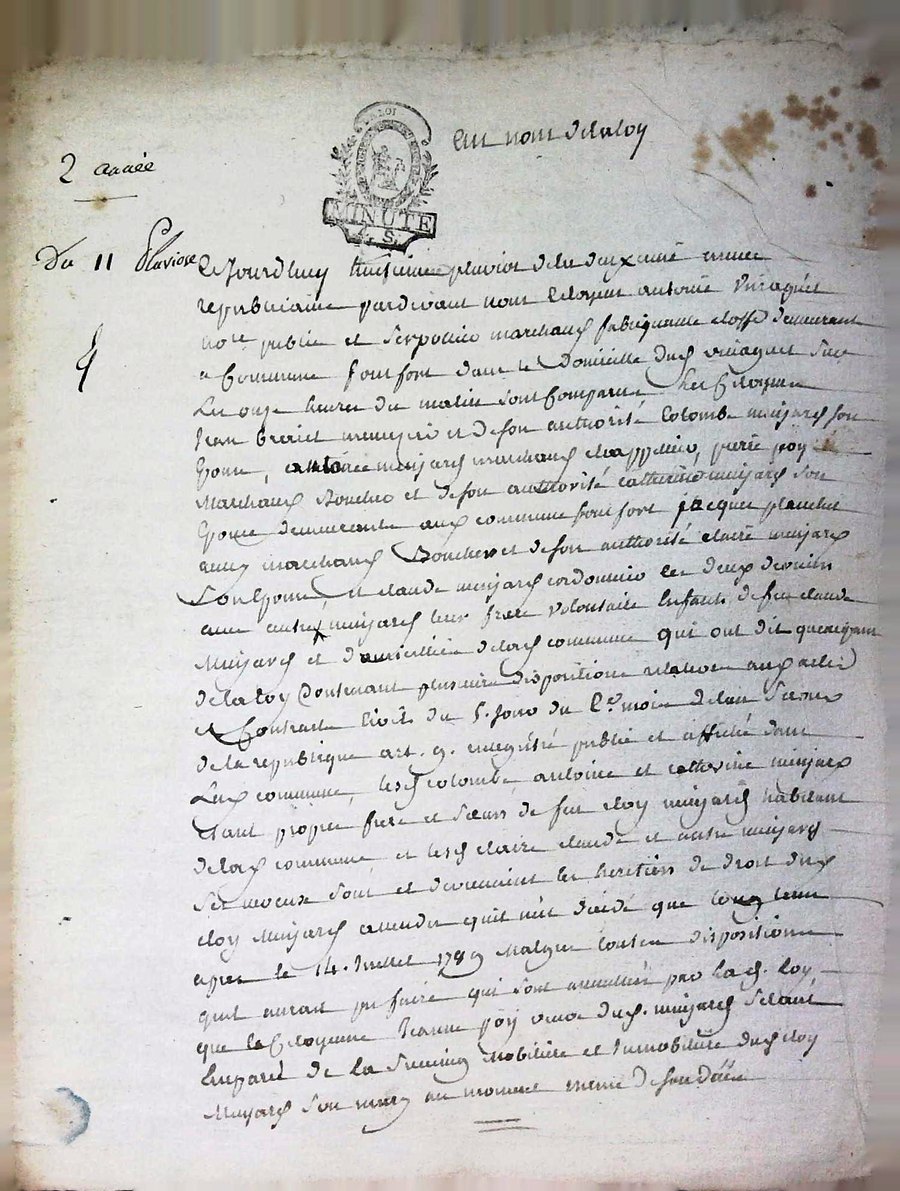 LA LOI
MINUTE
4. S.
Au nom de la loy
2 année
Du 11 Pluviose
Ce Jourdhuy huitieme pluviose de la deuxieme année
republicaine pardevant nous Citoyen antoine Viraguet
no.re public et marchand fabriquant etoffe demeurant
a Commune fonfort dans le Domicille dud viraguet Sur
Les onze heures du matin sont Comparus les Citoyens
Jean et de son authorité Colombe minjard son
Epouse, antoine minjard marchand pierre poy
Marchand Boucher et de son authorité catherine minjard son
Epouse demeurants aux commune fonfort jacques planchet
aussy marchand Boucher et de son authorité claire minjard
Son Epouse, et claude minjard cordonnier les deux derniers
avec autre minjard leur frere volontaire Enfants de feu claude
Minjard et domicillié de lad commune qui ont dit qu'en vertu
de la loy Contenant plusieurs disposition relative aux actes
et Contracts Civils du 5. Jour du 2.e mois de l'an Second
de la republique art. 9. enregistré publié et affiché dans
Lad commune, lesd colombe, antoine et catherine minjard
Etant propres frere et Sœurs de feu eloy minjard habitant
de lad commune et lesd claire claude et autre minjard
Ses neveux sont et devenaient les heritiers de droit dud
eloy Minjard attendu qu'il n'est décédé que long tems
apres le 14. Juillet 1789 Malgré toutes disposition
quil aurait pu faire qui sont annullées par lad. loy,
que la Citoyenne Jeanne poy veuve dud. minjard S'etant
Emparée de la Succession Mobiliere et Immobiliere dud eloy
Minjard Son mary au moment meme de son décès